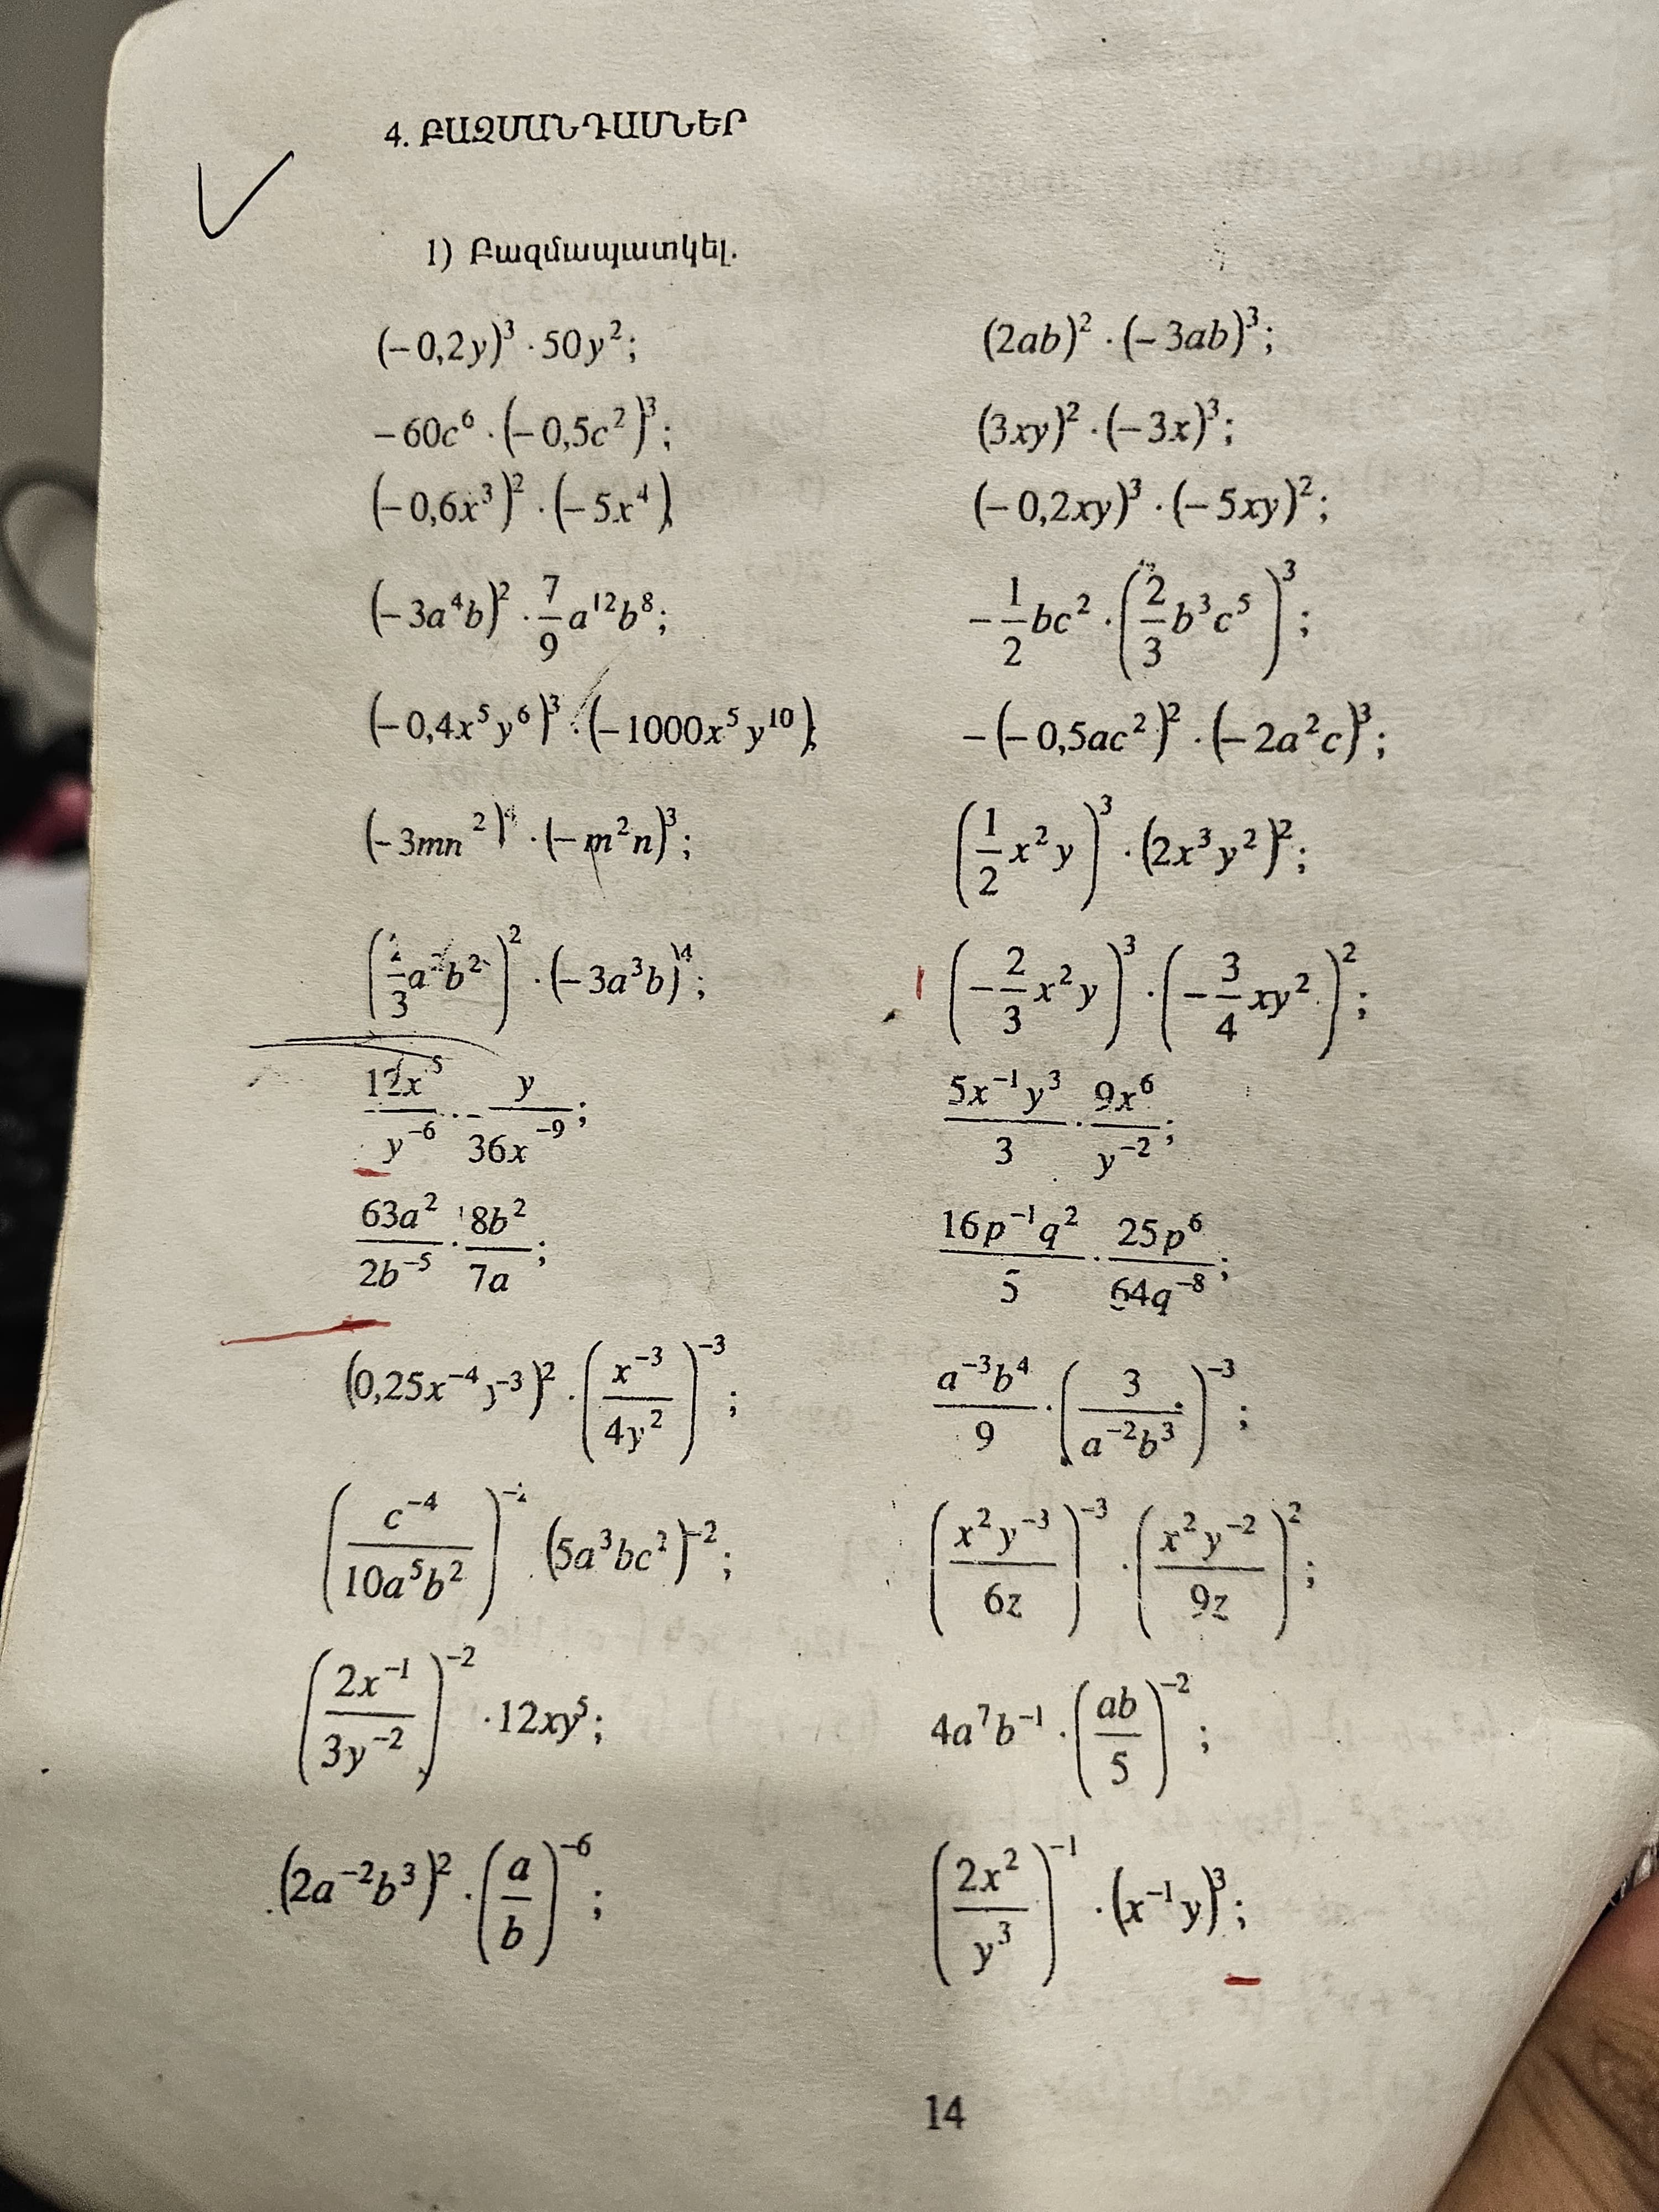 4. ԲԱԶՄԱՆԴԱՄՆԵՐ
1) Բազմապատկել.
(−0,2y)³ · 50y²; (2ab)² · (−3ab)³;
−60c⁶ · (−0,5c²)³; (3xy)² · (−3x)³;
(−0,6x³)² · (−5x⁴); (−0,2xy)³ · (−5xy)²;
(−3a⁴b)² · 7/9 a¹²b⁸; −1/2 bc² · (2/3 b³c⁵)³;
(−0,4x⁵y⁶)³ · (−1000x⁵y¹⁰); −(−0,5ac²)² · (−2a²c)³;
(−3mn²)⁴ · (−m²n)³; (1/2 x²y)³ · (2x³y²)²;
(/3 a b²)² · (−3a³b)⁴; (−2/3 x²y)³ · (−3/4 xy²)²;
12x⁵/y⁻⁶ · y/36x⁻⁹; 5x⁻¹y³/3 · 9x⁶/y⁻²;
63a²/2b⁻⁵ · 18b²/7a; 16p⁻¹q²/5 · 25p⁶/64q⁻⁸;
(0,25x⁻⁴y⁻³)² · (x⁻³/4y²)⁻³; a⁻³b⁴/9 · (3/a⁻²b³)⁻³;
(c⁻⁴/10a⁵b²)⁻² · (5a³bc²)⁻²; (x²y⁻³/6z)⁻³ · (x²y⁻²/9z)²;
(2x⁻¹/3y⁻²)⁻² · 12xy⁵; 4a⁷b⁻¹ · (ab/5)⁻²;
(2a⁻²b³)² · (a/b)⁻⁶; (2x²/y³)⁻¹ · (x⁻¹y)³;
14